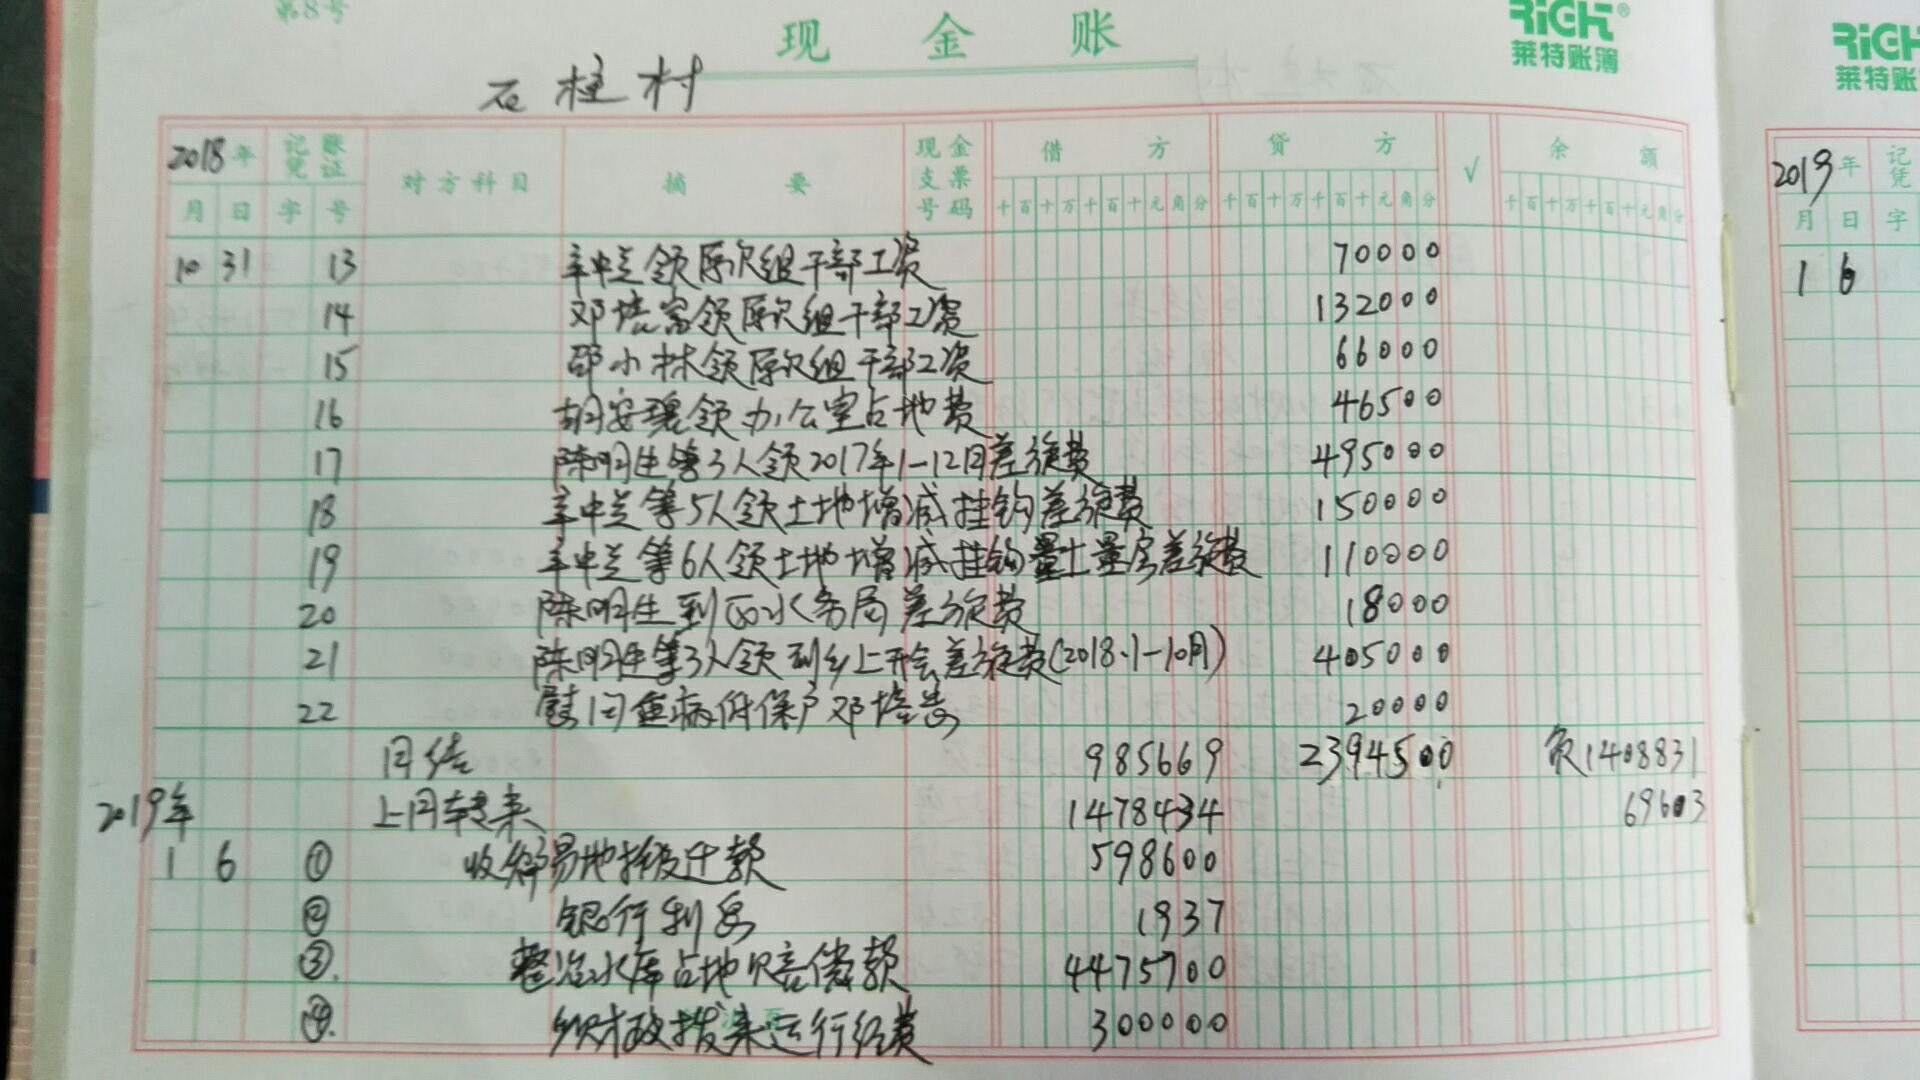 第8号
现金账
RiCH®
莱特账簿
RiCH
莱特账
石柱村
2018年 记账凭证 对方科目 摘要 现金支票号码 借方 贷方 √ 余额
月 日 字 号 千百十万千百十元角分 千百十万千百十元角分 千百十万千百十元角分
2019年 记凭
月 日 字
1 6
10 31 13 辛中兰领原次组干部工资 70000
14 邓培富领原次组干部工资 132000
15 邵小林领原次组干部工资 66000
16 胡安琼领办公室占地费 46500
17 陈明生等3人领2017年1-12月差旅费 495000
18 辛中兰等5人领土地增减挂钩差旅费 150000
19 辛中兰等6人领土地增减挂钩量土量房差旅费 110000
20 陈明生到区水务局差旅费 18000
21 陈明生等3人领到乡上开会差旅费(2018.1-10月) 405000
22 慰问重病低保户邓培 20000
月结 985669 2394500 负1408831
2019年 上月转来 1478434 69603
1 6 ① 收 易地扶贫迁款 598600
② 银行利息 1937
③ 整治水库占地赔偿款 4475700
④ 乡财政拨来运行经费 300000